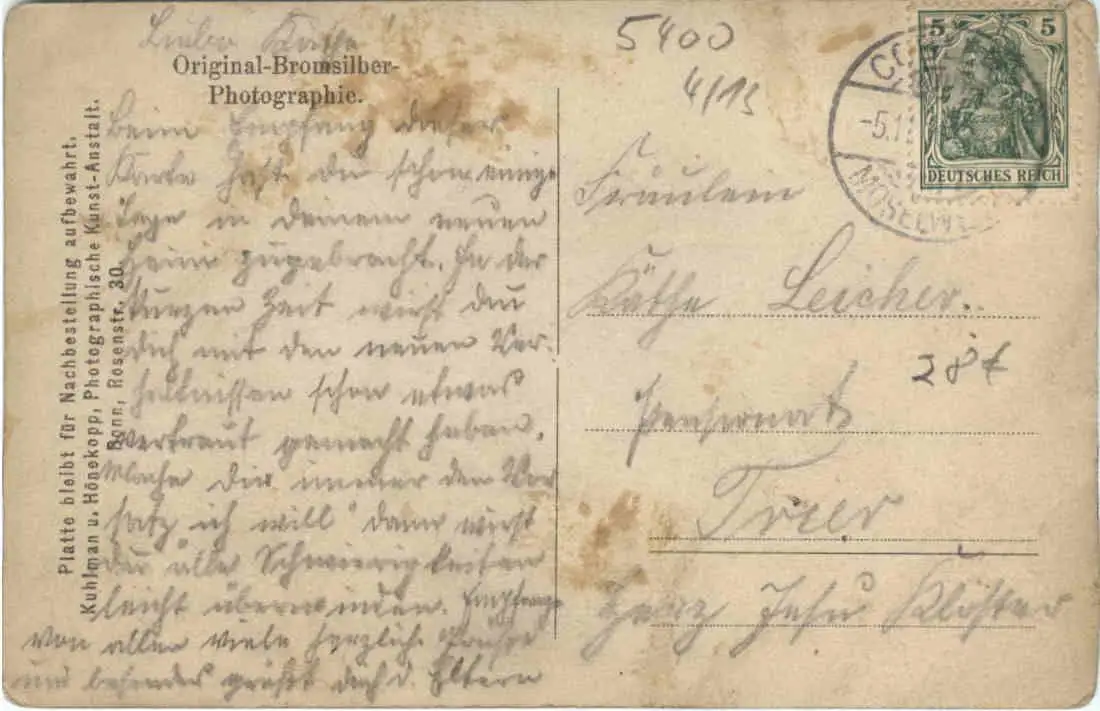 Liebe Käthe
Original-Bromsilber-
Photographie.
Beim Empfang dieser
Karte hast du schon einige
Tage in deinem neuen
Heim zugebracht. In der
kurzen Zeit wirst du
dich mit den neuen Ver-
hältnissen schon etwas
vertraut gemacht haben.
Mache dir immer den Vor
satz ich will" dann wirst
du alle Schwierigkeiten
leicht überwinden. Empfange
von allen viele herzliche Grüße
und besonders grüßt dich d. Eltern
Platte bleibt für Nachbestellung aufbewahrt.
Kuhlman u. Hönekopp, Photographische Kunst-Anstalt.
Bonn, Rosenstr. 30
5400
4/13
5 5
DEUTSCHES REICH
-5.1
MOSELW
Fräulein
Käthe Leicher.
Pensionat
Trier
Herz Jesu Klöster
28€